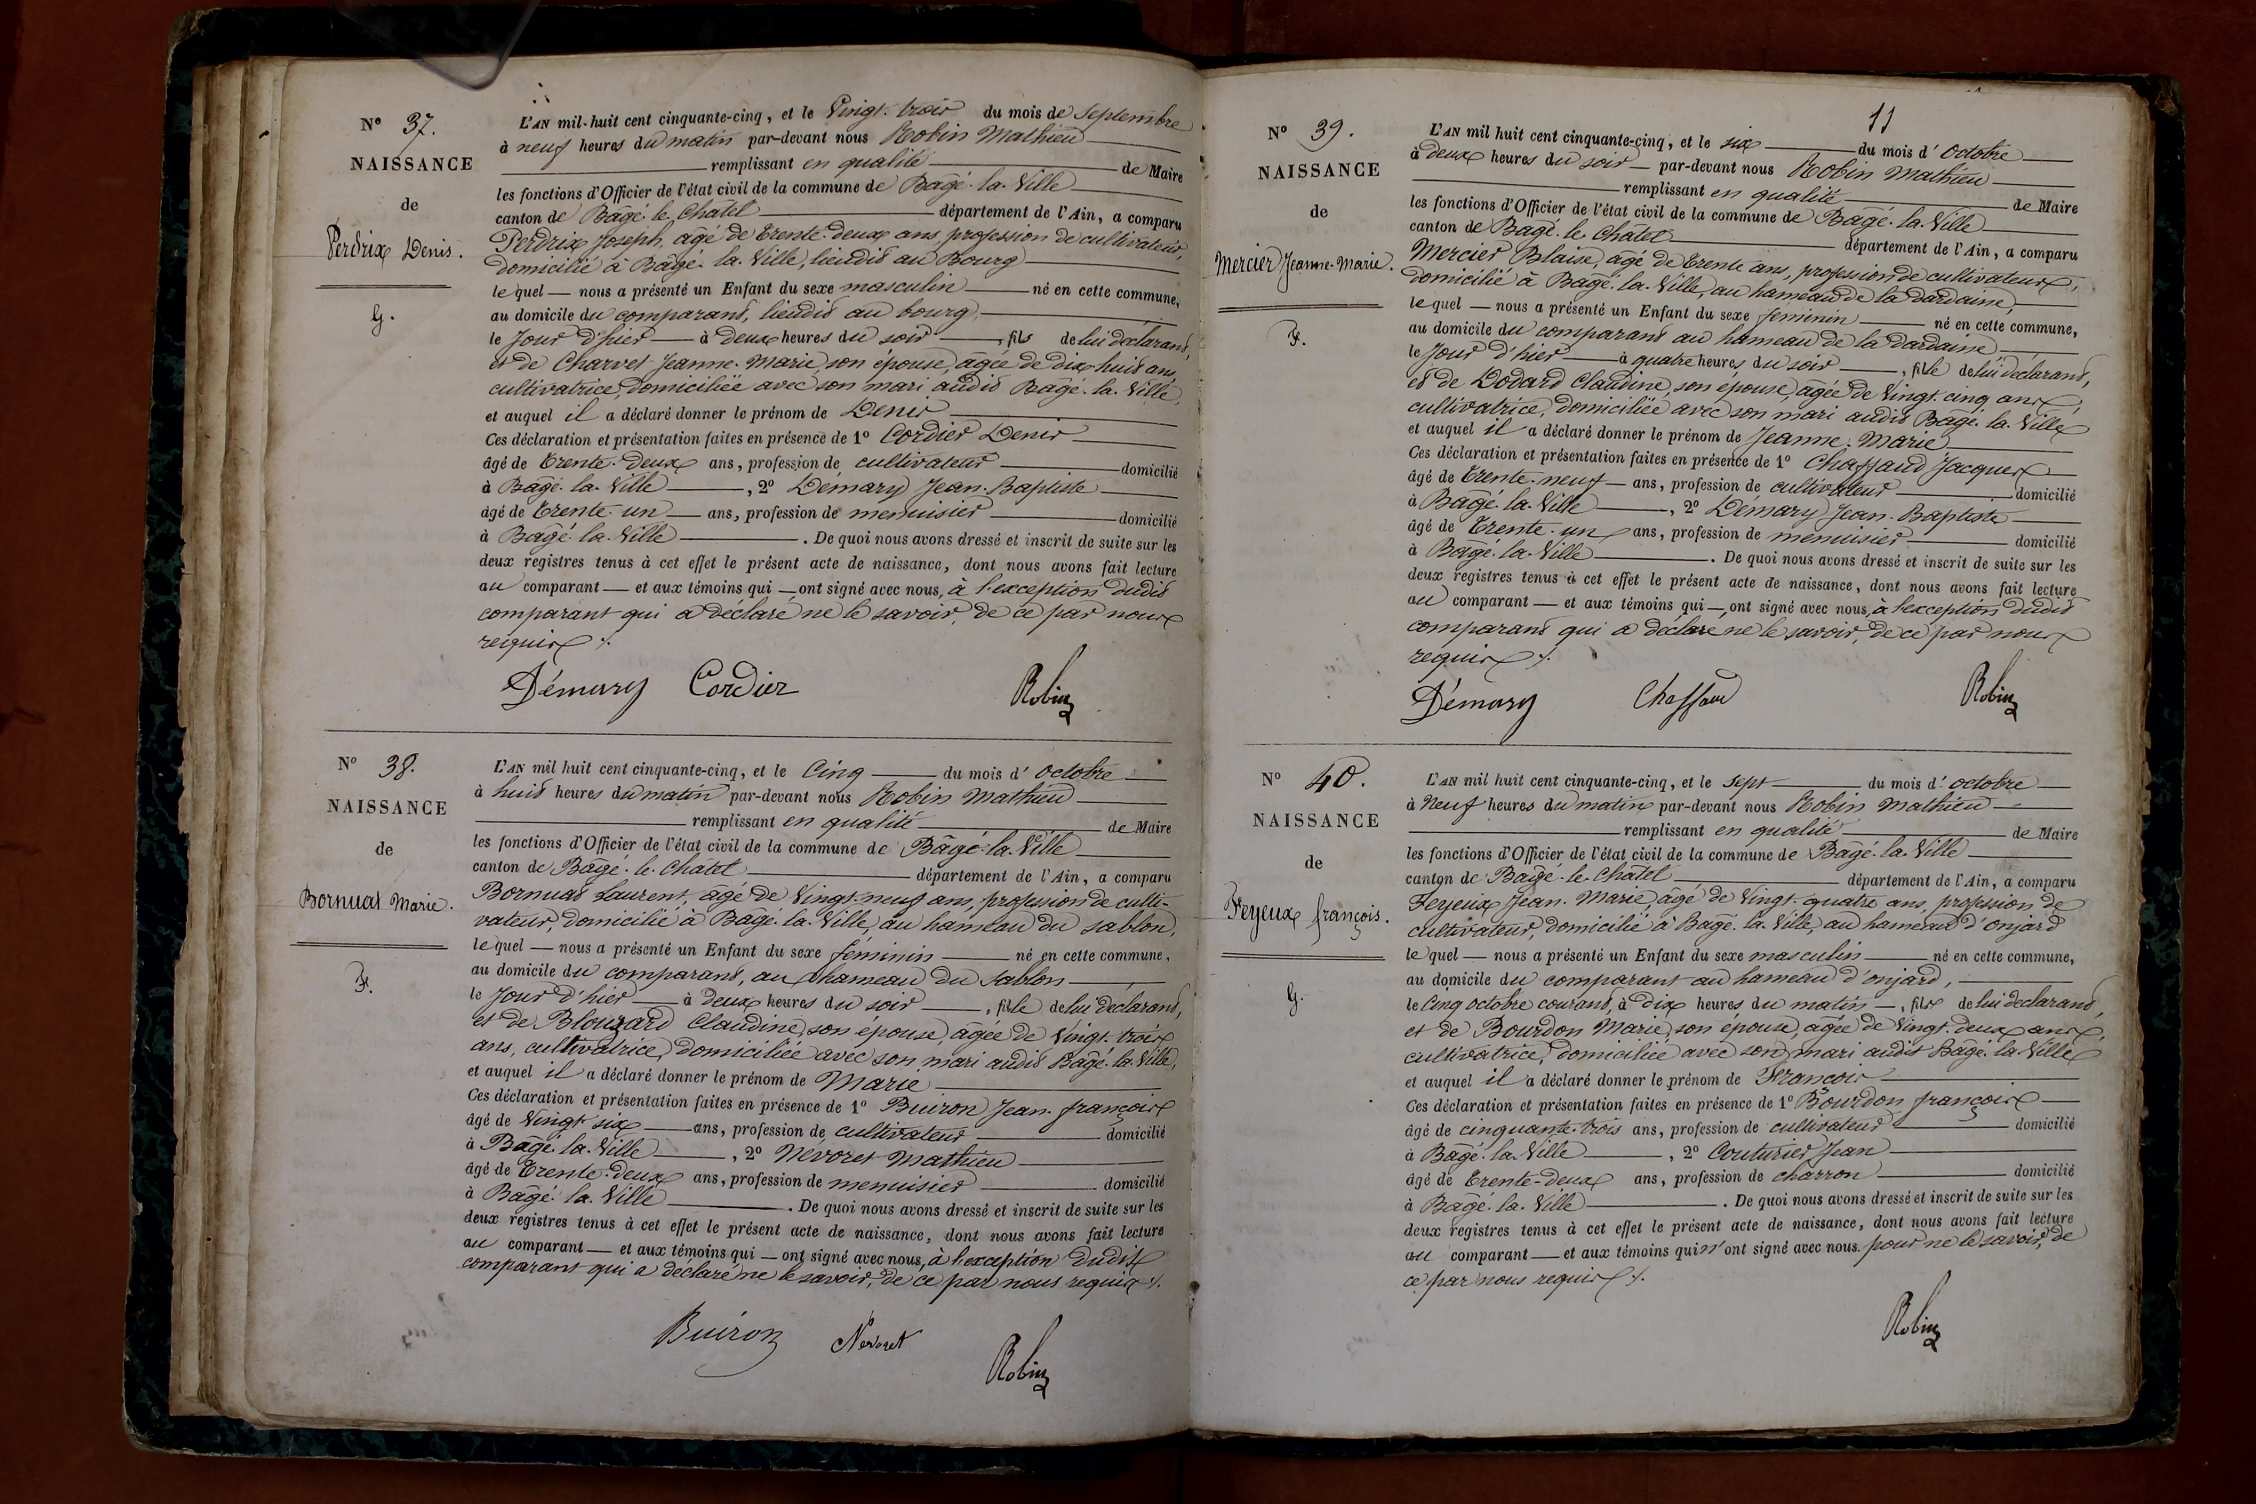 Nº 37.
NAISSANCE
de
Perdrix Denis.
G.
L'AN mil-huit cent cinquante-cinq, et le Vingt-trois du mois de Septembre
à neuf heures du matin par-devant nous Robin Mathieu
remplissant en qualité de Maire
les fonctions d'Officier de l'état civil de la commune de Bâgé-la-Ville
canton de Bâgé-le-Châtel département de l'Ain, a comparu
Perdrix Joseph, âgé de trente-deux ans, profession de cultivateur,
domicilié à Bâgé-la-Ville, lieudit au Bourg
lequel nous a présenté un Enfant du sexe masculin né en cette commune,
au domicile du comparant, lieudit au bourg,
le Jour d'hier à deux heures du soir, fils de lui déclarant,
et de Charvet Jeanne-Marie, son épouse, âgée de dix-huit ans,
cultivatrice, domiciliée avec son mari audit Bâgé-la-Ville,
et auquel il a déclaré donner le prénom de Denis
Ces déclaration et présentation faites en présence de 1º Cordier Denis
âgé de trente-deux ans, profession de cultivateur domicilié
à Bâgé-la-Ville, 2º Démary Jean-Baptiste
âgé de trente-un ans, profession de menuisier domicilié
à Bâgé-la-Ville. De quoi nous avons dressé et inscrit de suite sur les
deux registres tenus à cet effet le présent acte de naissance, dont nous avons fait lecture
au comparant et aux témoins qui ont signé avec nous, à l'exception dudit
comparant qui a déclaré ne le savoir, de ce par nous
requis ./.
Démary Cordier Robin
Nº 38.
NAISSANCE
de
Bornuat Marie.
F.
L'AN mil huit cent cinquante-cinq, et le Cinq du mois d'octobre
à huit heures du matin par-devant nous Robin Mathieu
remplissant en qualité de Maire
les fonctions d'Officier de l'état civil de la commune de Bâgé-la-Ville
canton de Bâgé-le-Châtel département de l'Ain, a comparu
Bornuat Laurent, âgé de Vingt-neuf ans, profession de culti-
vateur, domicilié à Bâgé-la-Ville, au hameau du sablon,
lequel nous a présenté un Enfant du sexe féminin né en cette commune,
au domicile du comparant, au hameau du sablon
le Jour d'hier à deux heures du soir, fille de lui déclarant,
et de Blouzard Claudine, son épouse, âgée de Vingt-trois
ans, cultivatrice, domiciliée avec son mari audit Bâgé-la-Ville,
et auquel il a déclaré donner le prénom de Marie
Ces déclaration et présentation faites en présence de 1º Buiron Jean-françois
âgé de Vingt-six ans, profession de cultivateur domicilié
à Bâgé-la-Ville, 2º Nevoret Mathieu
âgé de trente-deux ans, profession de menuisier domicilié
à Bâgé-la-Ville. De quoi nous avons dressé et inscrit de suite sur les
deux registres tenus à cet effet le présent acte de naissance, dont nous avons fait lecture
au comparant et aux témoins qui ont signé avec nous, à l'exception dudit
comparant qui a déclaré ne le savoir, de ce par nous requis ./.
Buiron Nevoret Robin
11
Nº 39.
NAISSANCE
de
Mercier Jeanne-Marie.
F.
L'AN mil huit cent cinquante-cinq, et le six du mois d'octobre
à deux heures du soir par-devant nous Robin Mathieu
remplissant en qualité de Maire
les fonctions d'Officier de l'état civil de la commune de Bâgé-la-Ville
canton de Bâgé-le-Châtel département de l'Ain, a comparu
Mercier Blaise, âgé de trente ans, profession de cultivateur,
domicilié à Bâgé-la-Ville, au hameau de la dardaine,
lequel nous a présenté un Enfant du sexe féminin né en cette commune,
au domicile du comparant au hameau de la dardaine
le Jour d'hier à quatre heures du soir, fille de lui déclarant,
et de Dodard Claudine, son épouse, âgée de Vingt-cinq ans,
cultivatrice, domiciliée avec son mari audit Bâgé-la-Ville
et auquel il a déclaré donner le prénom de Jeanne-Marie
Ces déclaration et présentation faites en présence de 1º Chaffaud Jacques
âgé de trente-neuf ans, profession de cultivateur domicilié
à Bâgé-la-Ville, 2º Démary Jean-Baptiste
âgé de trente-un ans, profession de menuisier domicilié
à Bâgé-la-Ville. De quoi nous avons dressé et inscrit de suite sur les
deux registres tenus à cet effet le présent acte de naissance, dont nous avons fait lecture
au comparant et aux témoins qui ont signé avec nous, à l'exception dudit
comparant qui a déclaré ne le savoir, de ce par nous
requis ./.
Démary Chaffaud Robin
Nº 40.
NAISSANCE
de
Feyeux françois.
G.
L'AN mil huit cent cinquante-cinq, et le sept du mois d'octobre
à Neuf heures du matin par-devant nous Robin Mathieu
remplissant en qualité de Maire
les fonctions d'Officier de l'état civil de la commune de Bâgé-la-Ville
canton de Bâgé-le-Châtel département de l'Ain, a comparu
Feyeux Jean-Marie, âgé de Vingt-quatre ans, profession de
cultivateur, domicilié à Bâgé-la-Ville, au hameau d'onjard
lequel nous a présenté un Enfant du sexe masculin né en cette commune,
au domicile du comparant au hameau d'onjard,
le Cinq octobre courant, à Dix heures du matin, fils de lui déclarant,
et de Bourdon Marie, son épouse, âgée de Vingt-deux ans,
cultivatrice, domiciliée avec son mari audit Bâgé-la-Ville
et auquel il a déclaré donner le prénom de François
Ces déclaration et présentation faites en présence de 1º Bourdon françois
âgé de cinquante-trois ans, profession de cultivateur domicilié
à Bâgé-la-Ville, 2º Couturier Jean
âgé de trente-deux ans, profession de charron domicilié
à Bâgé-la-Ville. De quoi nous avons dressé et inscrit de suite sur les
deux registres tenus à cet effet le présent acte de naissance, dont nous avons fait lecture
au comparant et aux témoins qui n'ont signé avec nous pour ne le savoir, de
ce par nous requis ./.
Robin